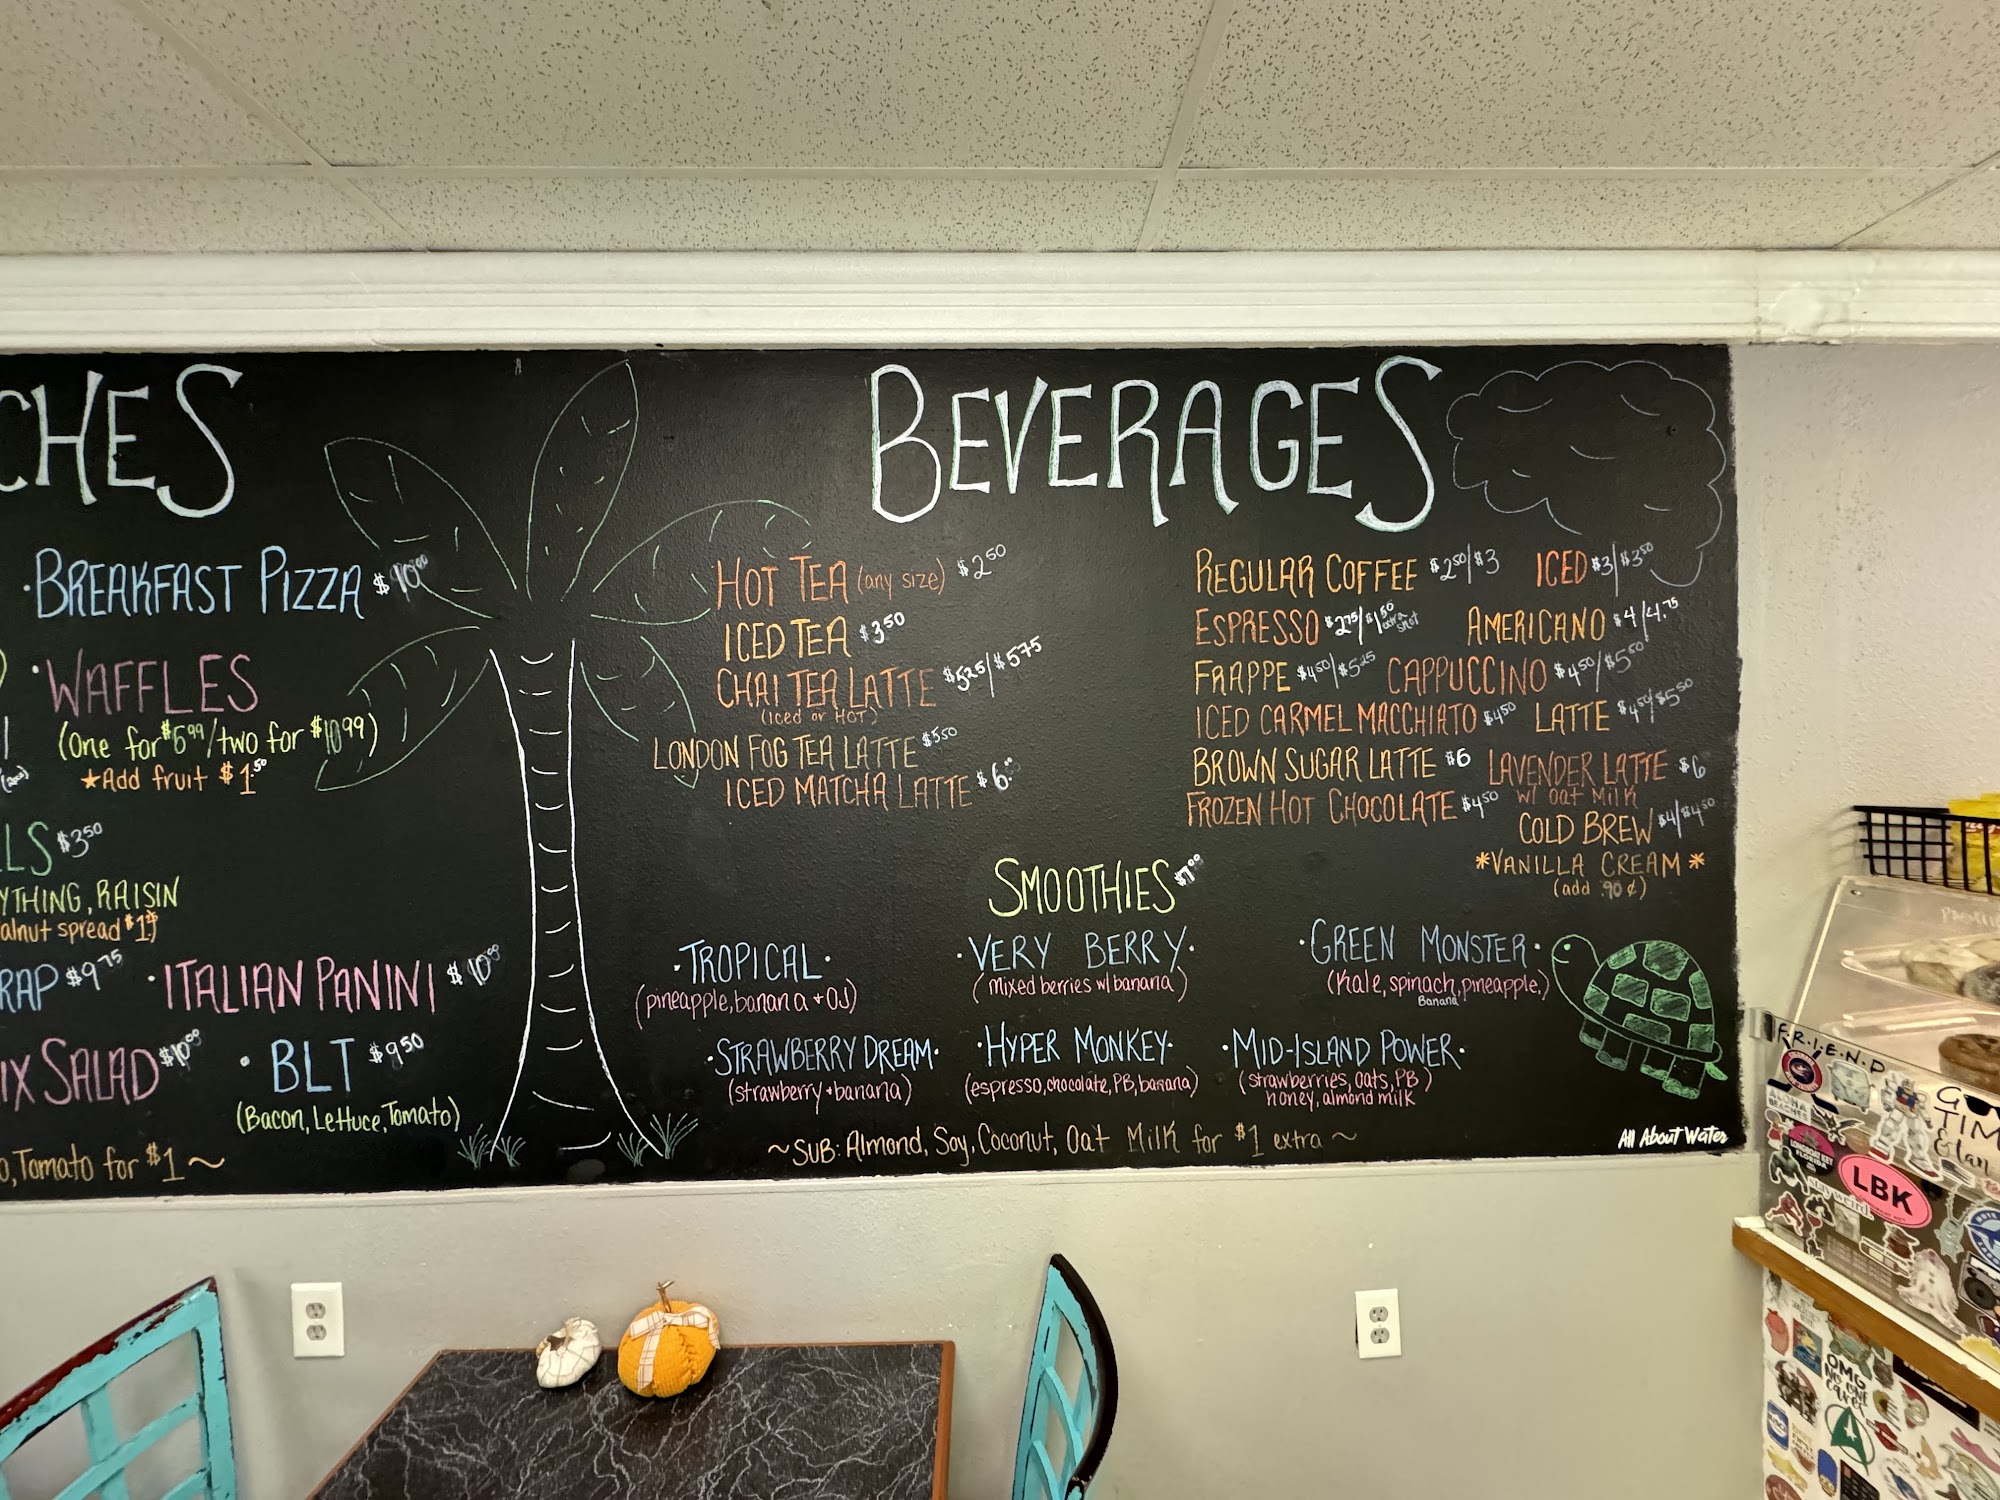 CHES
·BREAKFAST PIZZA $10.00
·WAFFLES
(One for $6.99/two for $10.99)
★Add fruit $1.50
LS $3.50
YTHING, RAISIN
alnut spread $1
RAP $9.75 ·ITALIAN PANINI $10.00
IX SALAD $10.00 ·BLT $9.50
(Bacon, Lettuce, Tomato)
o, Tomato for $1 ~
BEVERAGES
HOT TEA (any size) $2.50
ICED TEA $3.50
CHAI TEA LATTE $5.25/$5.75
(iced or HOT)
LONDON FOG TEA LATTE $5.50
ICED MATCHA LATTE $6.00
REGULAR COFFEE $2.50/$3 ICED $3/$3.50
ESPRESSO $2.75/$1.50 extra shot AMERICANO $4/4.75
FRAPPE $4.50/$5.25 CAPPUCCINO $4.50/$5.50
ICED CARMEL MACCHIATO $4.50 LATTE $4.50/$5.50
BROWN SUGAR LATTE $6 LAVENDER LATTE $6
w/ Oat Milk
FROZEN HOT CHOCOLATE $4.50
COLD BREW $4/$4.50
*VANILLA CREAM*
(add .90¢)
SMOOTHIES $7.00
·TROPICAL·
(pineapple, banana + OJ)
·VERY BERRY·
(mixed berries w/ banana)
·GREEN MONSTER·
(Kale, spinach, pineapple,)
Banana
·STRAWBERRY DREAM·
(strawberry + banana)
·HYPER MONKEY·
(espresso, chocolate, PB, banana)
·MID-ISLAND POWER·
(strawberries, oats, PB)
honey, almond milk
~SUB: Almond, Soy, Coconut, Oat Milk for $1 extra~
All About Water
F·R·I·E·N·D
LONGBOAT KEY
FLORIDA
stay weird.
LBK
OMG
NO ONE
cares